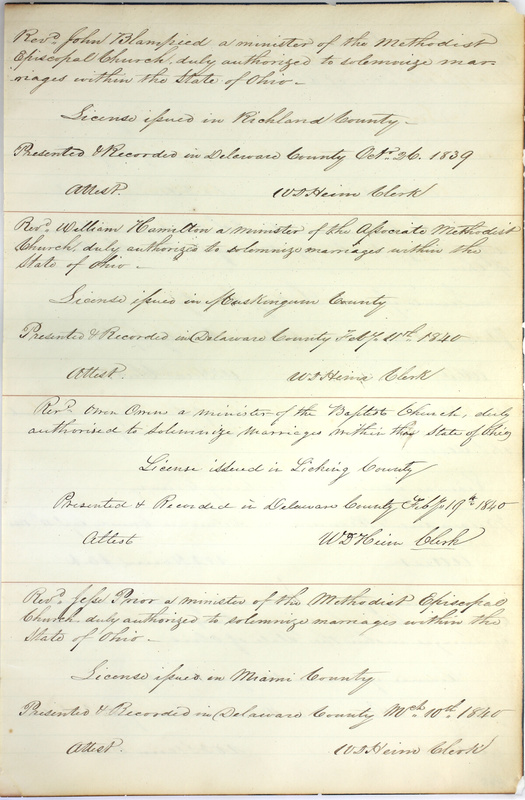 Revd. John Blampied a minister of the Methodist
Episcopal Church, duly authorized to solemnize mar-
riages within the State of Ohio -
License issued in Richland County -
Presented & Recorded in Delaware County Octr. 26. 1839
Attest. W D Heim Clerk
Revd. William Hamilton a minister of the Associate Methodist
Church, duly authorized to solemnize marriages within the
State of Ohio -
License issued in Muskingum County
Presented & Recorded in Delaware County Feby. 11th. 1840
Attest. W D Heim Clerk
Revd. Owen Owens a minister of the Baptist Church, duly
authorised to Solemnize, Marriages within the State of Ohio
License issued in Licking County
Presented & Recorded in Delaware County Feby. 19th 1840
Attest W D Heim Clerk
Revd. Jesse Prior a minister of the Methodist Episcopal
Church duly authorized to solemnize marriages within the
State of Ohio -
License issued in Miami County
Presented & Recorded in Delaware County Mch. 10th. 1840
Attest. W D Heim Clerk